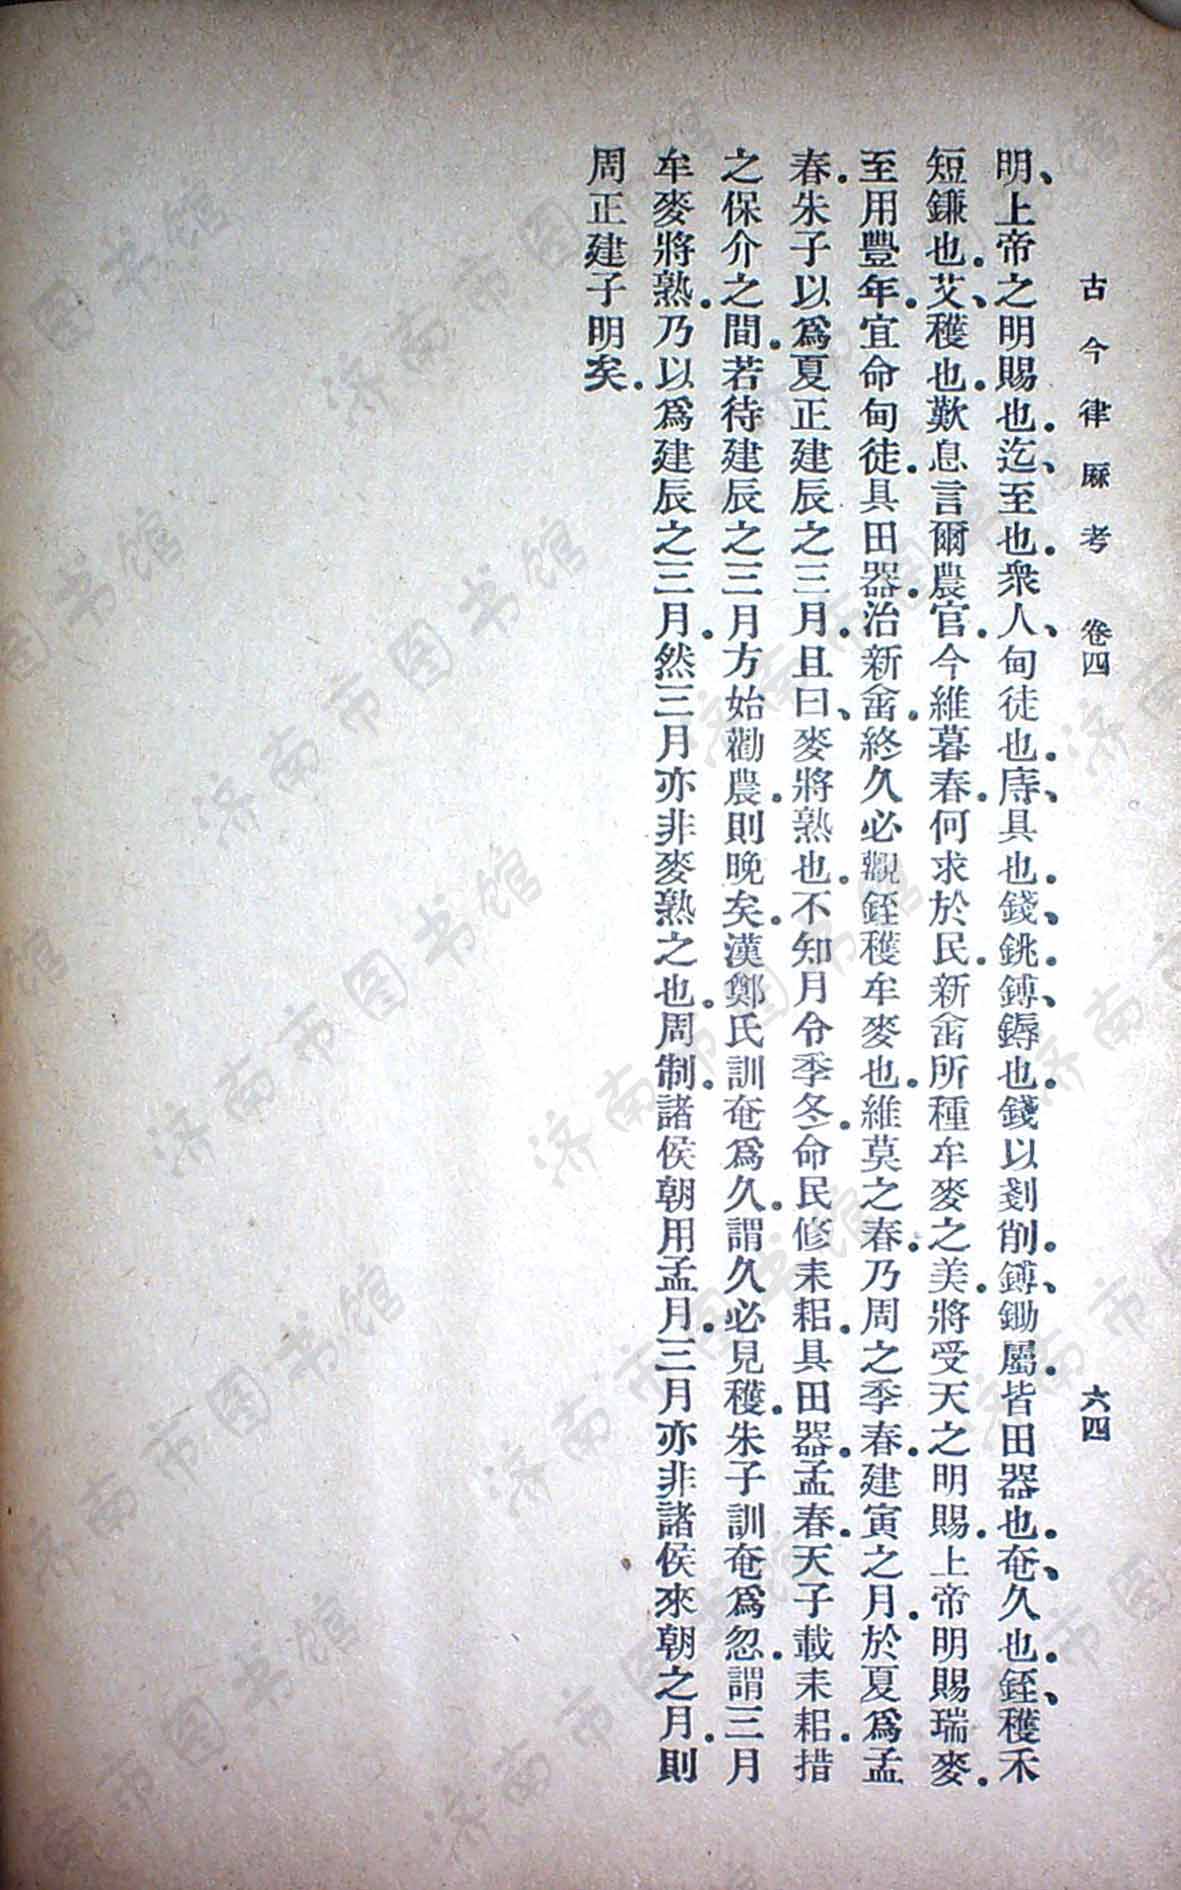 古今律厤考　卷四　六四
明、上帝之明賜也。迄、至也。衆人、甸徒也。庤、具也。錢、銚。鎛、鎒也。錢以剗削。鎛、鋤屬。皆田器也。奄、久也。銍、穫禾
短鎌也。艾、穫也。歎息言爾農官。今維暮春。何求於民。新畬所種牟麥之美。將受天之明賜。上帝明賜瑞麥。
至用豐年。宜命甸徒。具田器。治新畬。終久必觀銍穫牟麥也。維莫之春。乃周之季春。建寅之月。於夏爲孟
春。朱子以爲夏正建辰之三月。且曰、麥將熟也。不知月令季冬。命民修耒耜。具田器。孟春。天子載耒耜。措
之保介之間。若待建辰之三月方始勸農。則晚矣。漢鄭氏訓奄爲久。謂久必見穫。朱子訓奄爲忽。謂三月
牟麥將熟。乃以爲建辰之三月。然三月亦非麥熟之也。周制。諸侯朝用孟月。三月亦非諸侯來朝之月。則
周正建子明矣。
济南市图书馆